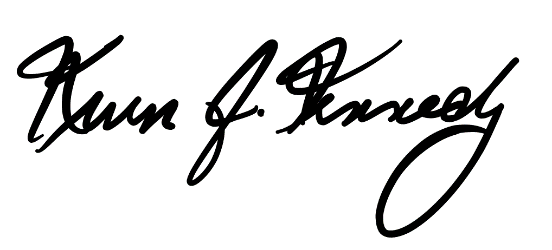 Kevin J. Kennedy